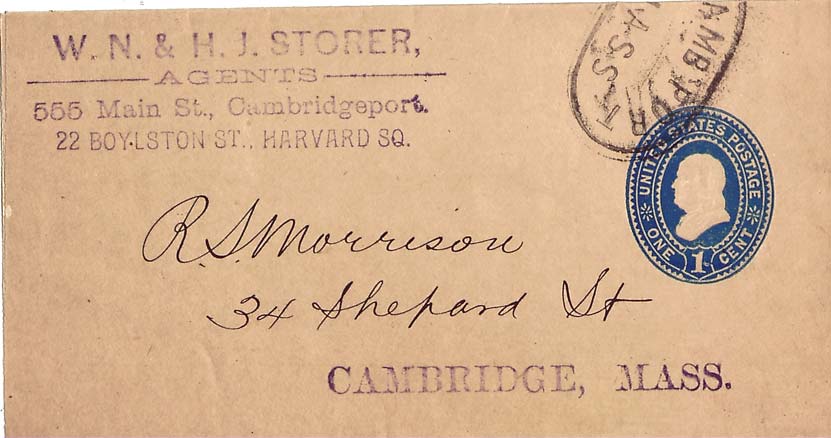 W. N. & H. J. STORER,
AGENTS
555 Main St., Cambridgeport.
22 BOYLSTON ST., HARVARD SQ.
MASS
UNITED STATES POSTAGE
ONE 1 CENT
R. S. Morrison
34 Shepard St
CAMBRIDGE, MASS.